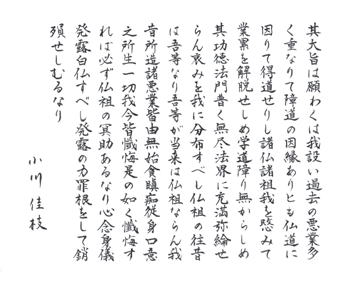 其大旨は願わくは我設い過去の悪業多
く重なりて障道の因縁ありとも仏道に
因りて得道せりし諸仏諸祖我を愍みて
業累を解脱せしめ学道障り無からしめ
其功徳法門普く無尽法界に充満弥綸せ
らん哀みを我に分布すべし仏祖の往昔
は吾等なり吾等が当来は仏祖ならん我
昔所造諸悪業皆由無始貪瞋痴従身口意
之所生一切我今皆懺悔是の如く懺悔す
れば必ず仏祖の冥助あるなり心念身儀
発露白仏すべし発露の力罪根をして銷
殞せしむるなり
小川佳枝